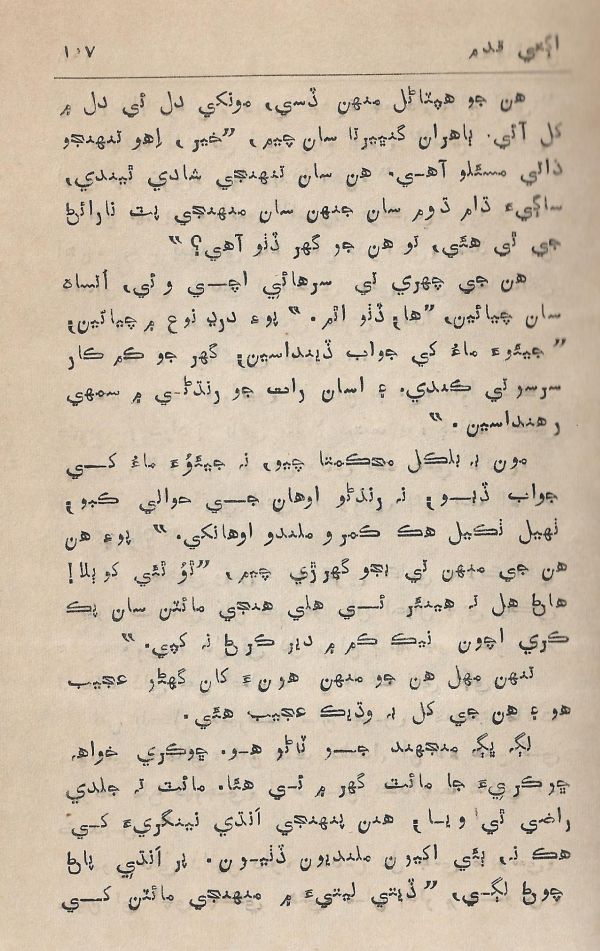 اڳتي قدم ١٠٧
هن جو هپٽائل منهن ڏسي، مونکي دل ئي دل ۾
کل آئي. ٻاهران گنڀيرتا سان چيم، ”خير، اِهو تنهنجو
ذاتي مسئلو آهي. هن سان تنهنجي شادي ٿيندي،
ساڳيءَ ڌام ڌوم سان جنهن سان منهنجي پٽ نارائڻ
جي ٿي هئي، تو هن جو گهر ڏٺو آهي؟“
هن جي چهري تي سرهائي اچي وئي، اُتساهه
سان چيائين، ”هاڻ ڏٺو اٿم.“ پوءِ دٻيل نوع ۾ چيائين؛
”جيٿوءَ ماءُ کي جواب ڏينداسين؛ گهر جو ڪم ڪار
سرسوتي ڪندي. ۽ اسان رات جو رنڌڻي ۾ سمهي
رهنداسين.“
مون به بلڪل محڪمتا چيو، نه جيٿوءَ ماءُ کي
جواب ڏبو ۽ نه رنڌڻو اوهان جي حوالي ڪبو؛
ٺهيل ٺڪيل هڪ ڪمرو ملندو اوهانکي.“ پوءِ هن
هن جي منهن تي ٻجو گهرڙي چيم، ”ٿُو ٿئي کو ٻلا!
هاڻ هل ته هينئر ئي هلي هنجي مائٽن سان پڪ
ڪري اچون نيڪ ڪم ۾ دير ڪرڻ نه کپي.“
تنهن مهل هن جو منهن هونءَ کان گهڻو عجيب
هو ۽ هن جي کل به وڌيڪ عجيب هئي.
لڳ ڀڳ منجهند جو ٽاڻو هو. ڇوڪري خواهه
ڇوڪريءَ جا مائٽ گهر ۾ ئي هئا. مائٽ ته جلدي
راضي ٿي ويا؛ هنن پنهنجي اَنڌي نينگريءَ کي
هڪ نه، ٻئي اکيون ملنديون ڏٺيون. پر اَنڌي پاڻ
چوڻ لڳي، ”ڏيتي ليتيءَ ۾ منهنجي مائٽن کي